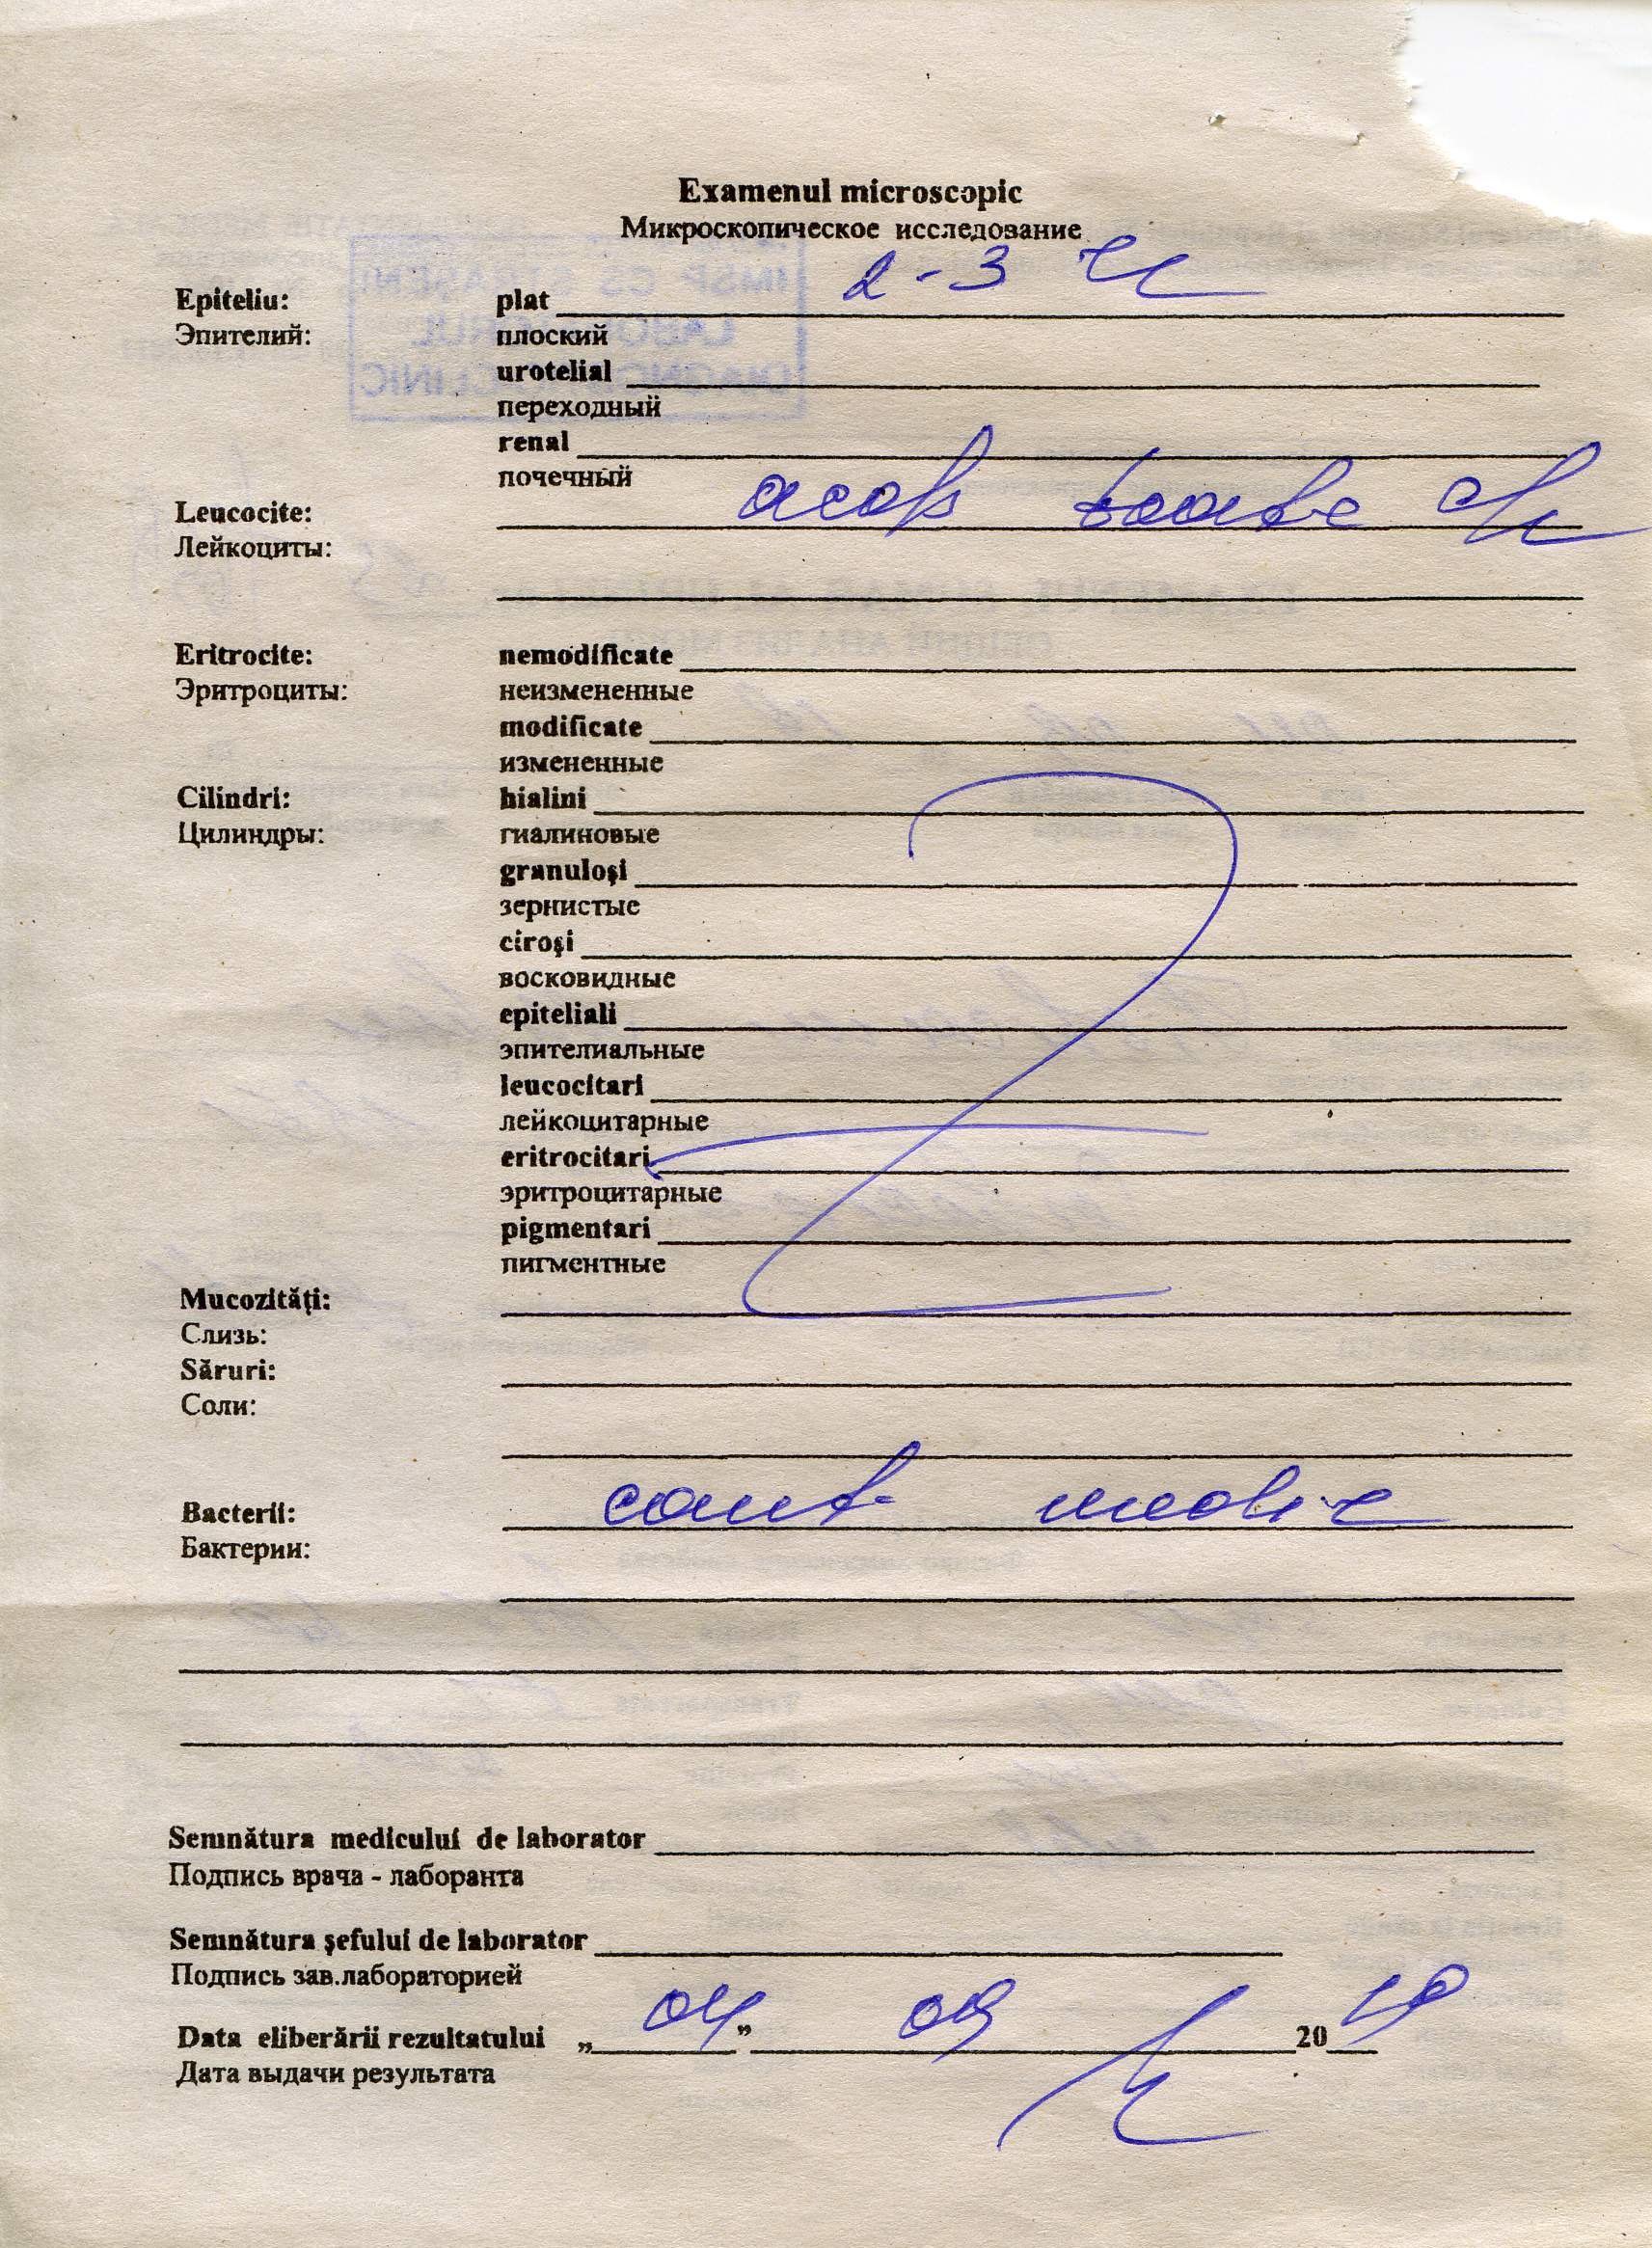 Examenul microscopic
Микроскопическое исследование
Epiteliu: plat 2-3
Эпителий: плоский
urotelial
переходный
renal
почечный
Leucocite: acop toate
Лейкоциты:
Eritrocite: nemodificate
Эритроциты: неизмененные
modificate
измененные
Cilindri: hialini
Цилиндры: гиалиновые
granuloşi
зернистые
ciroşi
восковидные
epiteliali
эпителиальные
leucocitari
лейкоцитарные
eritrocitari
эритроцитарные
pigmentari
пигментные
Mucozităţi:
Слизь:
Săruri:
Соли:
Bacterii: cant
Бактерии:
Semnătura medicului de laborator
Подпись врача - лаборанта
Semnătura şefului de laborator
Подпись зав.лабораторией
Data eliberării rezultatului „04” 09 2019
Дата выдачи результата